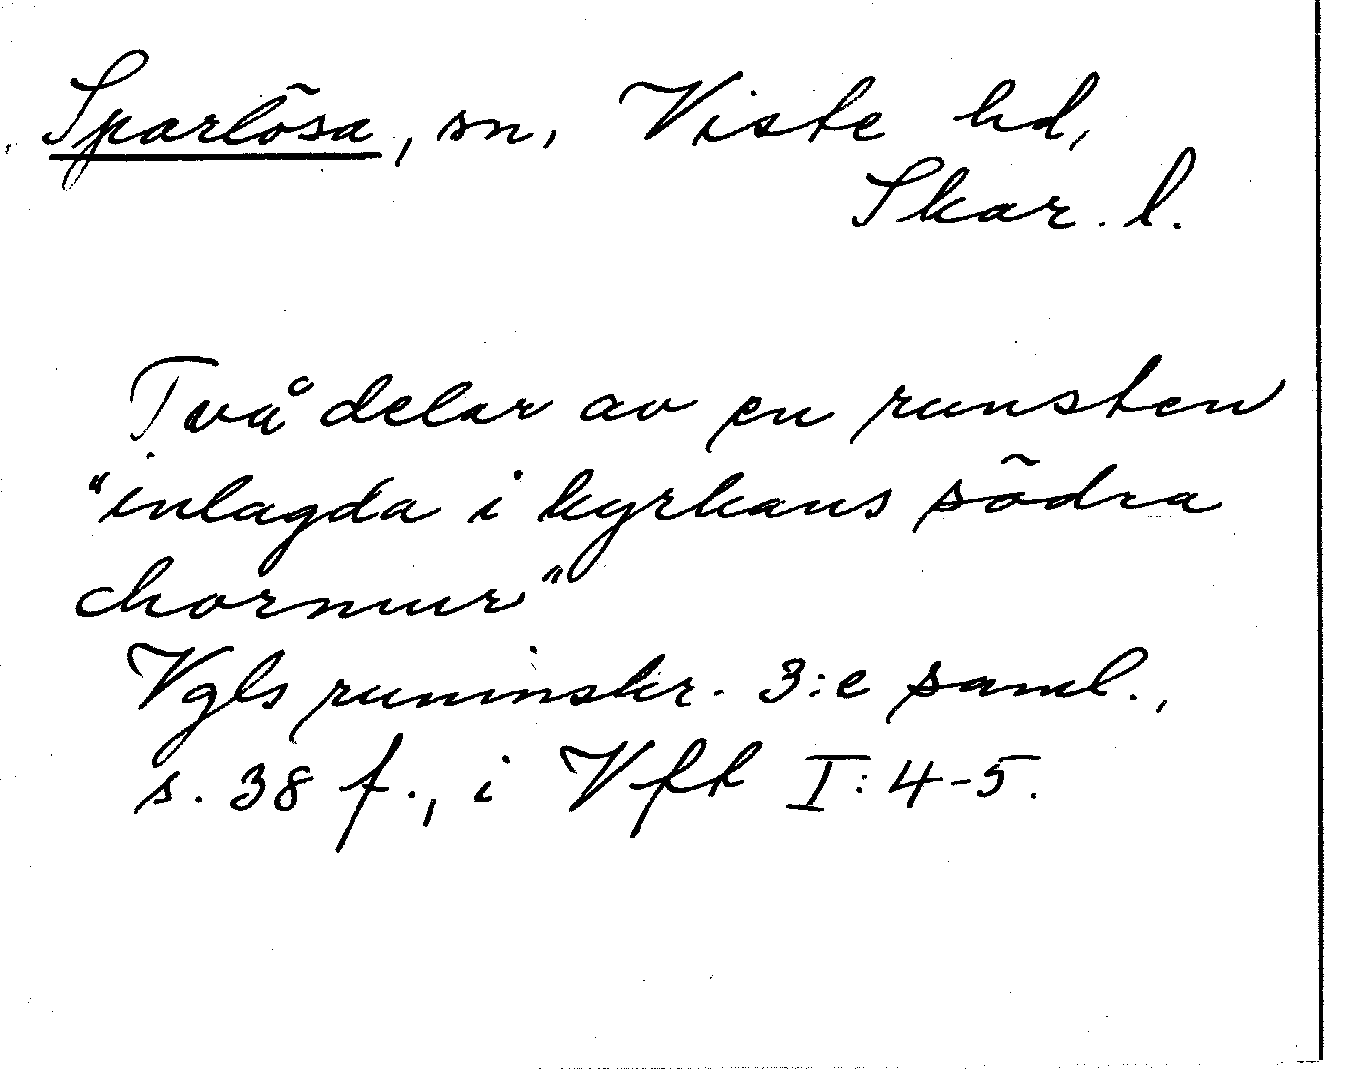 Sparlösa, sn, Viste hd,
Skar. l.
Två delar av en runsten
"inlagda i kyrkans södra
chormur"
Vgls runinskr. 3:e saml.,
s. 38 f., i Vft I: 4-5.